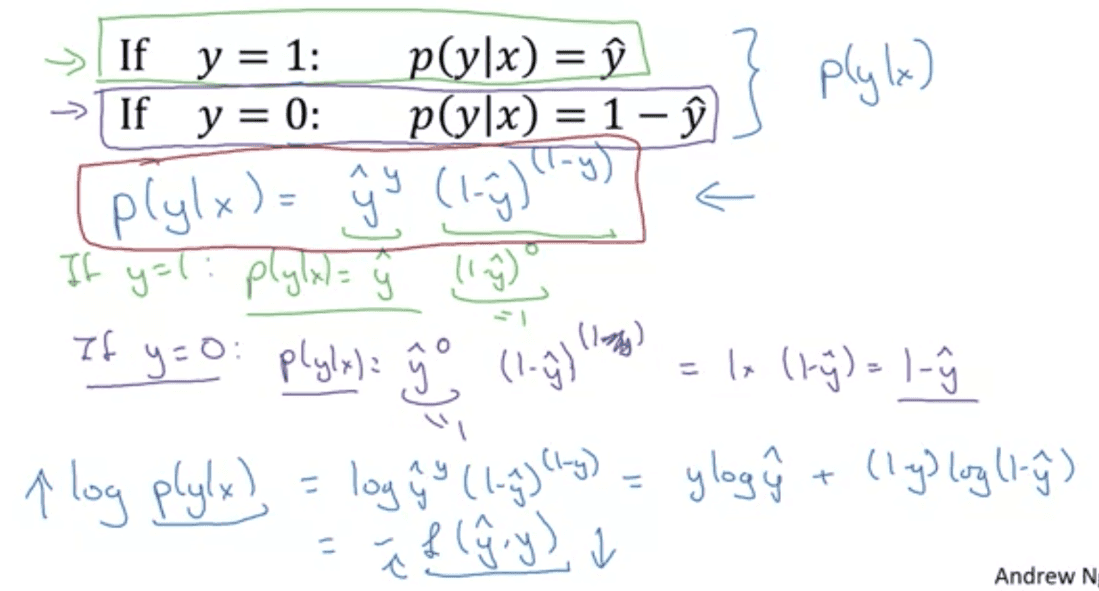 If y = 1: p(y|x) = ŷ
If y = 0: p(y|x) = 1 − ŷ } p(y|x)
p(y|x) = ŷ^y (1-ŷ)^(1-y) ←
If y=1: p(y|x) = ŷ (1-ŷ)^0
=1
If y=0: p(y|x) = ŷ^0 (1-ŷ)^(1-y) = 1 × (1-ŷ) = 1-ŷ
=1
↑ log p(y|x) = log ŷ^y (1-ŷ)^(1-y) = y log ŷ + (1-y) log(1-ŷ)
= - ℒ(ŷ,y) ↓
Andrew Ng